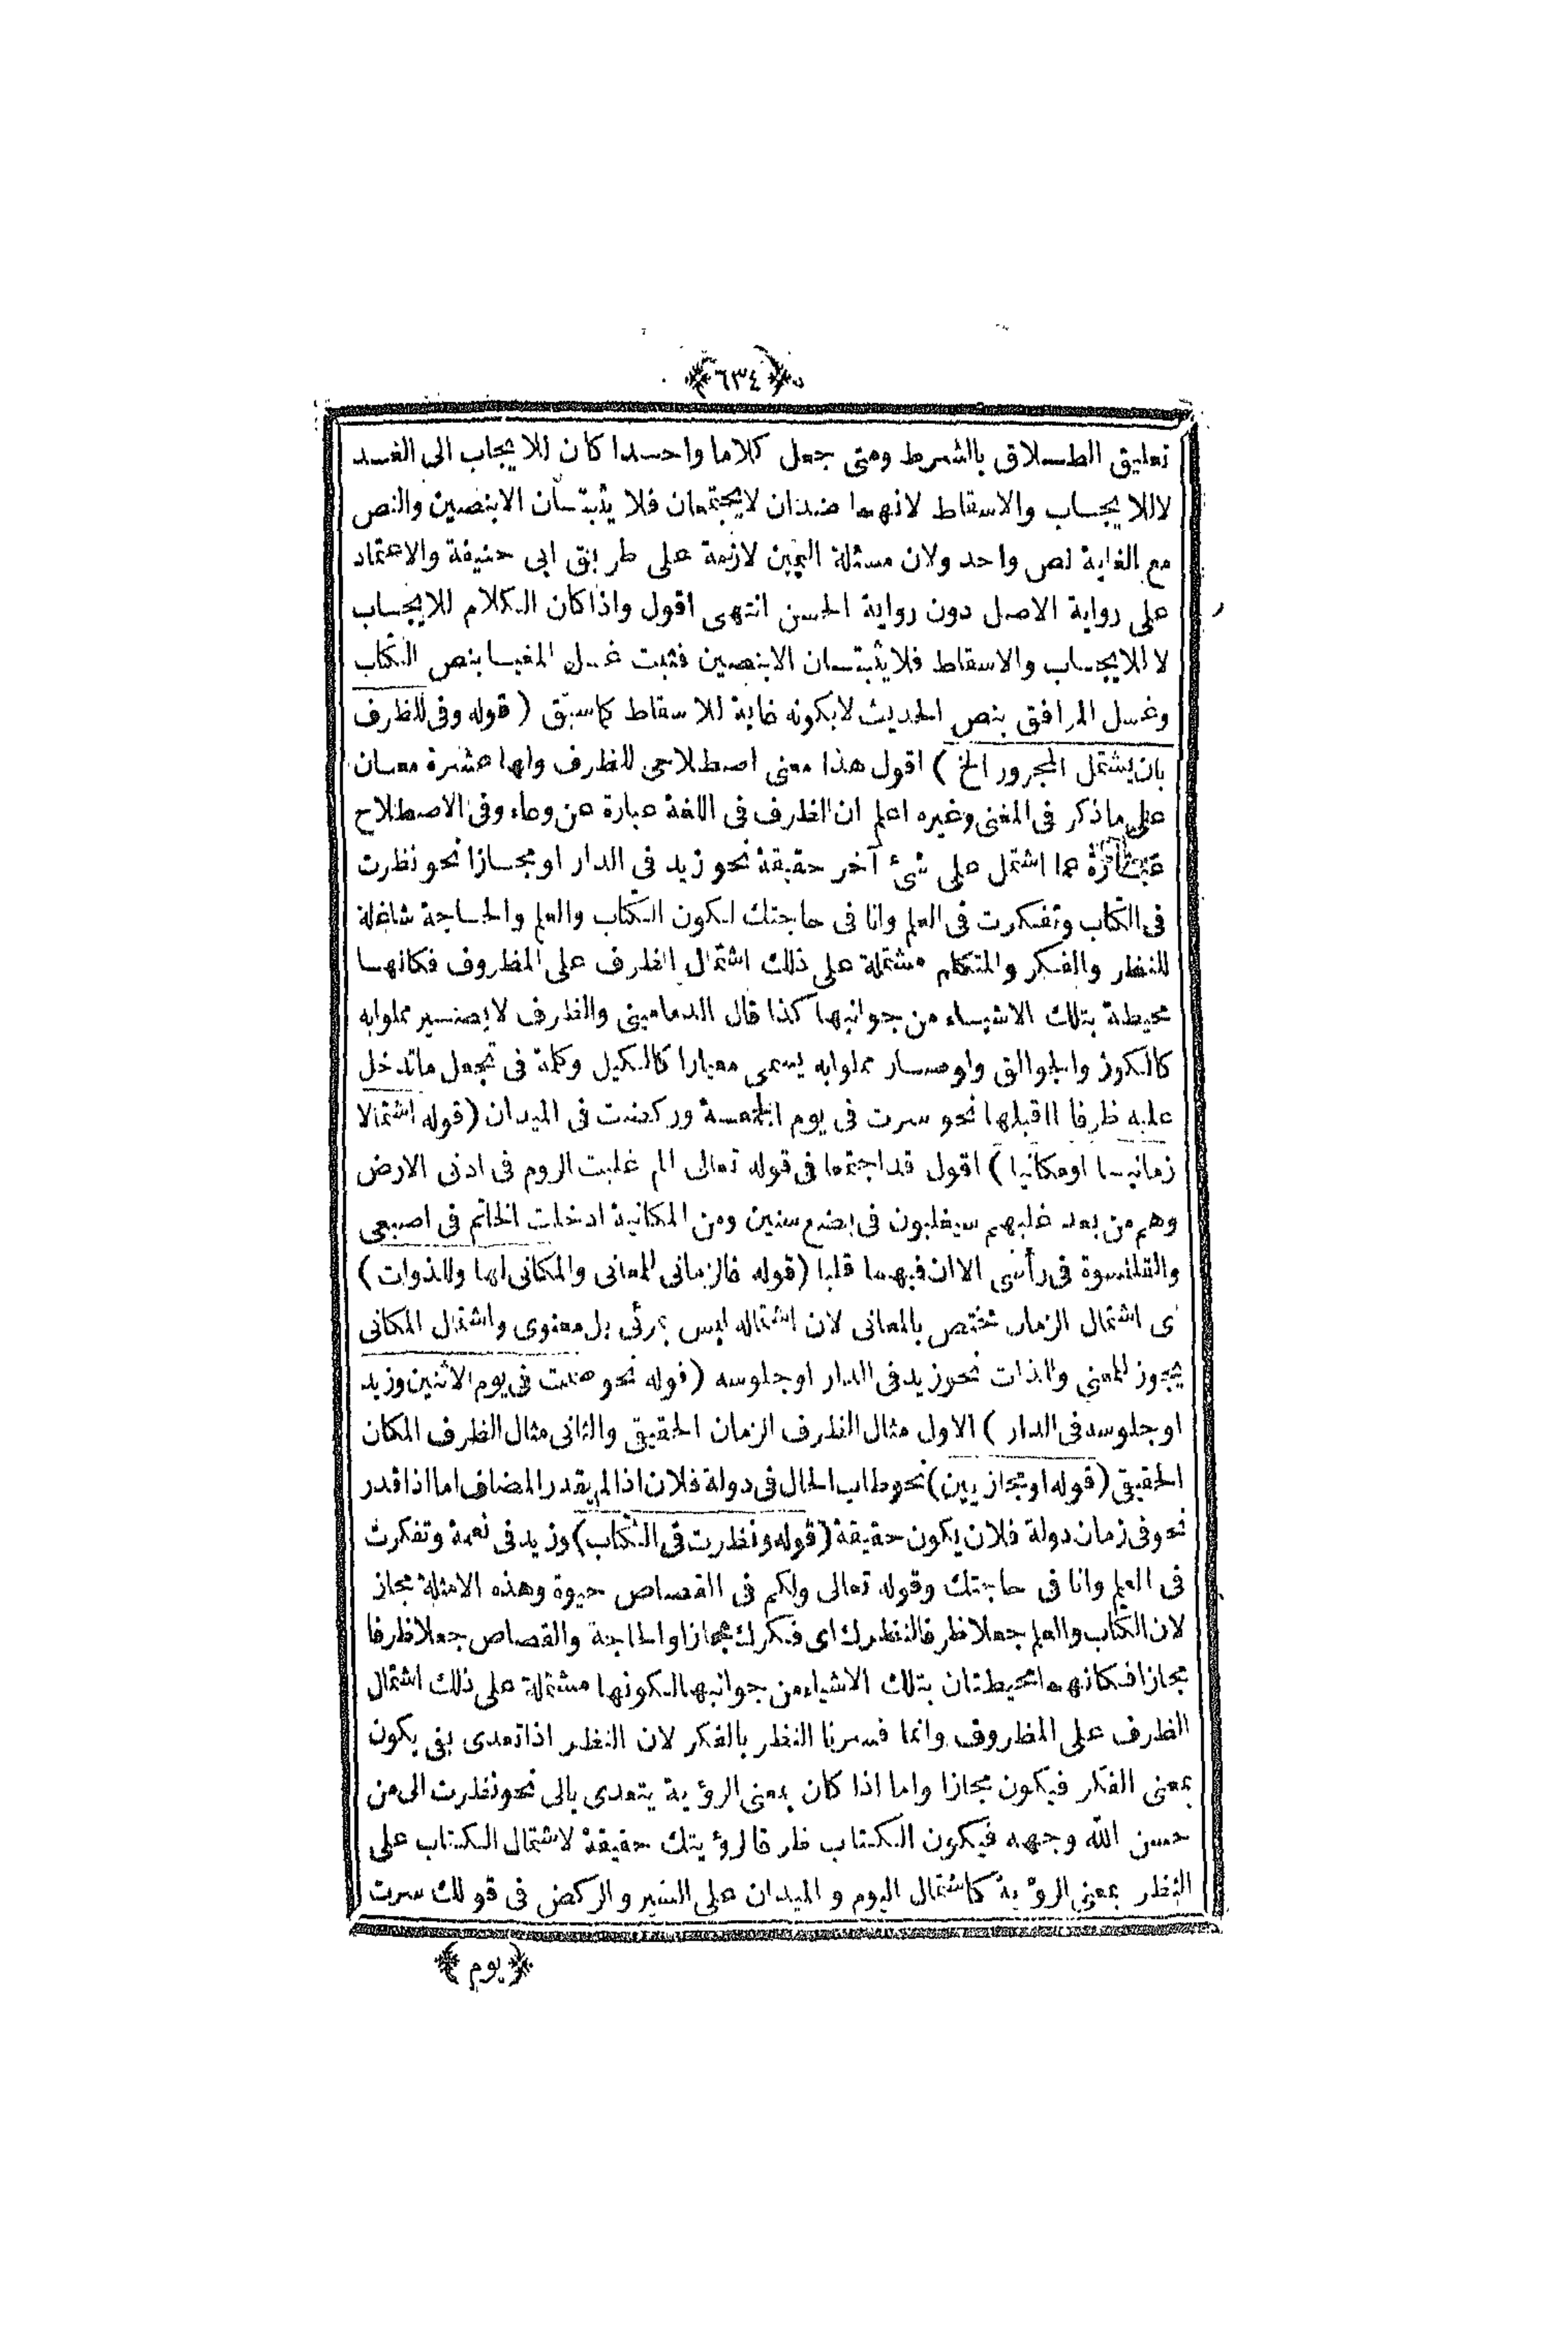 ﴿٦٣٤﴾
تعليق الطلاق بالشرط ومتى جعل كلاما واحدا كان للايجاب الى الغد
لاللايجاب والاسقاط لانهما ضدان لايجتمعان فلا يثبتان الابنصين والنص
مع الغاية نص واحد ولان مسئلة اليمين لازمة على طريق ابى حنيفة والاعتماد
على رواية الاصل دون رواية الحسن انتهى اقول واذا كان الكلام للايجاب
لا للايجاب والاسقاط فلا يثبتان الابنصين فثبت غسل المغيا بنص الكتاب
وغسل المرافق بنص الحديث لابكونه غاية للاسقاط كما سبق (قوله وفى للظرف
بان يشتمل المجرور الخ) اقول هذا معنى اصطلاحى للظرف ولها عشرة معان
على ماذكر فى المغنى وغيره اعلم ان الظرف فى اللغة عبارة عن وعاء وفى الاصطلاح
عبارة عما اشتمل على شئ آخر حقيقة نحو زيد فى الدار او مجازا نحو نظرت
فى الكتاب وتفكرت فى العلم وانا فى حاجتك لكون الكتاب والعلم والحاجة شاغلة
للنظر والفكر والمتكلم مشتملة على ذلك اشتمال الظرف على المظروف فكانها
محيطة بتلك الاشياء من جوانبها كذا قال الدمامينى والظرف لايصير مملوا به
كالكوز والجوالق ولو صار مملوا به يسمى معيارا كالكيل وكلمة فى تجعل ماتدخل
عليه ظرفا لما قبلها نحو سرت فى يوم الجمعة وركضت فى الميدان (قوله اشتمالا
زمانيا او مكانيا) اقول قد اجتمعا فى قوله تعالى الم غلبت الروم فى ادنى الارض
وهم من بعد غلبهم سيغلبون فى بضع سنين ومن المكانية ادخلت الخاتم فى اصبعى
والقلنسوة فى رأسى الا ان فيهما قلبا (قوله فالزمانى للمعانى والمكانى لها وللذوات)
ى اشتمال الزمان مختص بالمعانى لان اشتماله ليس بمرئى بل معنوى واشتمال المكانى
يجوز للمعنى والذات نحو زيد فى الدار او جلوسه (قوله نحو صمت فى يوم الاثنين وزيد
او جلوسه فى الدار) الاول مثال الظرف الزمان الحقيقى والثانى مثال الظرف المكان
الحقيقى (قوله او مجازيين) نحو طاب الحال فى دولة فلان اذا لم يقدر المضاف اما اذا قدر
نحو فى زمان دولة فلان يكون حقيقة (قوله ونظرت فى الكتاب) وزيد فى نعمة وتفكرت
فى العلم وانا فى حاجتك وقوله تعالى ولكم فى القصاص حيوة وهذه الامثلة مجاز
لان الكتاب والعلم جعلا ظرفا لنظرك اى فكرك مجازا والحاجة والقصاص جعلا ظرفا
مجازا فكانهما محيطتان بتلك الاشياء من جوانبها لكونها مشتملة على ذلك اشتمال
الظرف على المظروف وانما فسرنا النظر بالفكر لان النظر اذا تعدى بفى يكون
بمعنى الفكر فيكون مجازا واما اذا كان بمعنى الرؤية يتعدى بالى نحو نظرت الى من
حسن الله وجهه فيكون الكتاب ظرفا لرؤيتك حقيقة لاشتمال الكتاب على
النظر بمعنى الرؤية كاشتمال اليوم والميدان على السير والركض فى قولك سرت
﴿يوم﴾